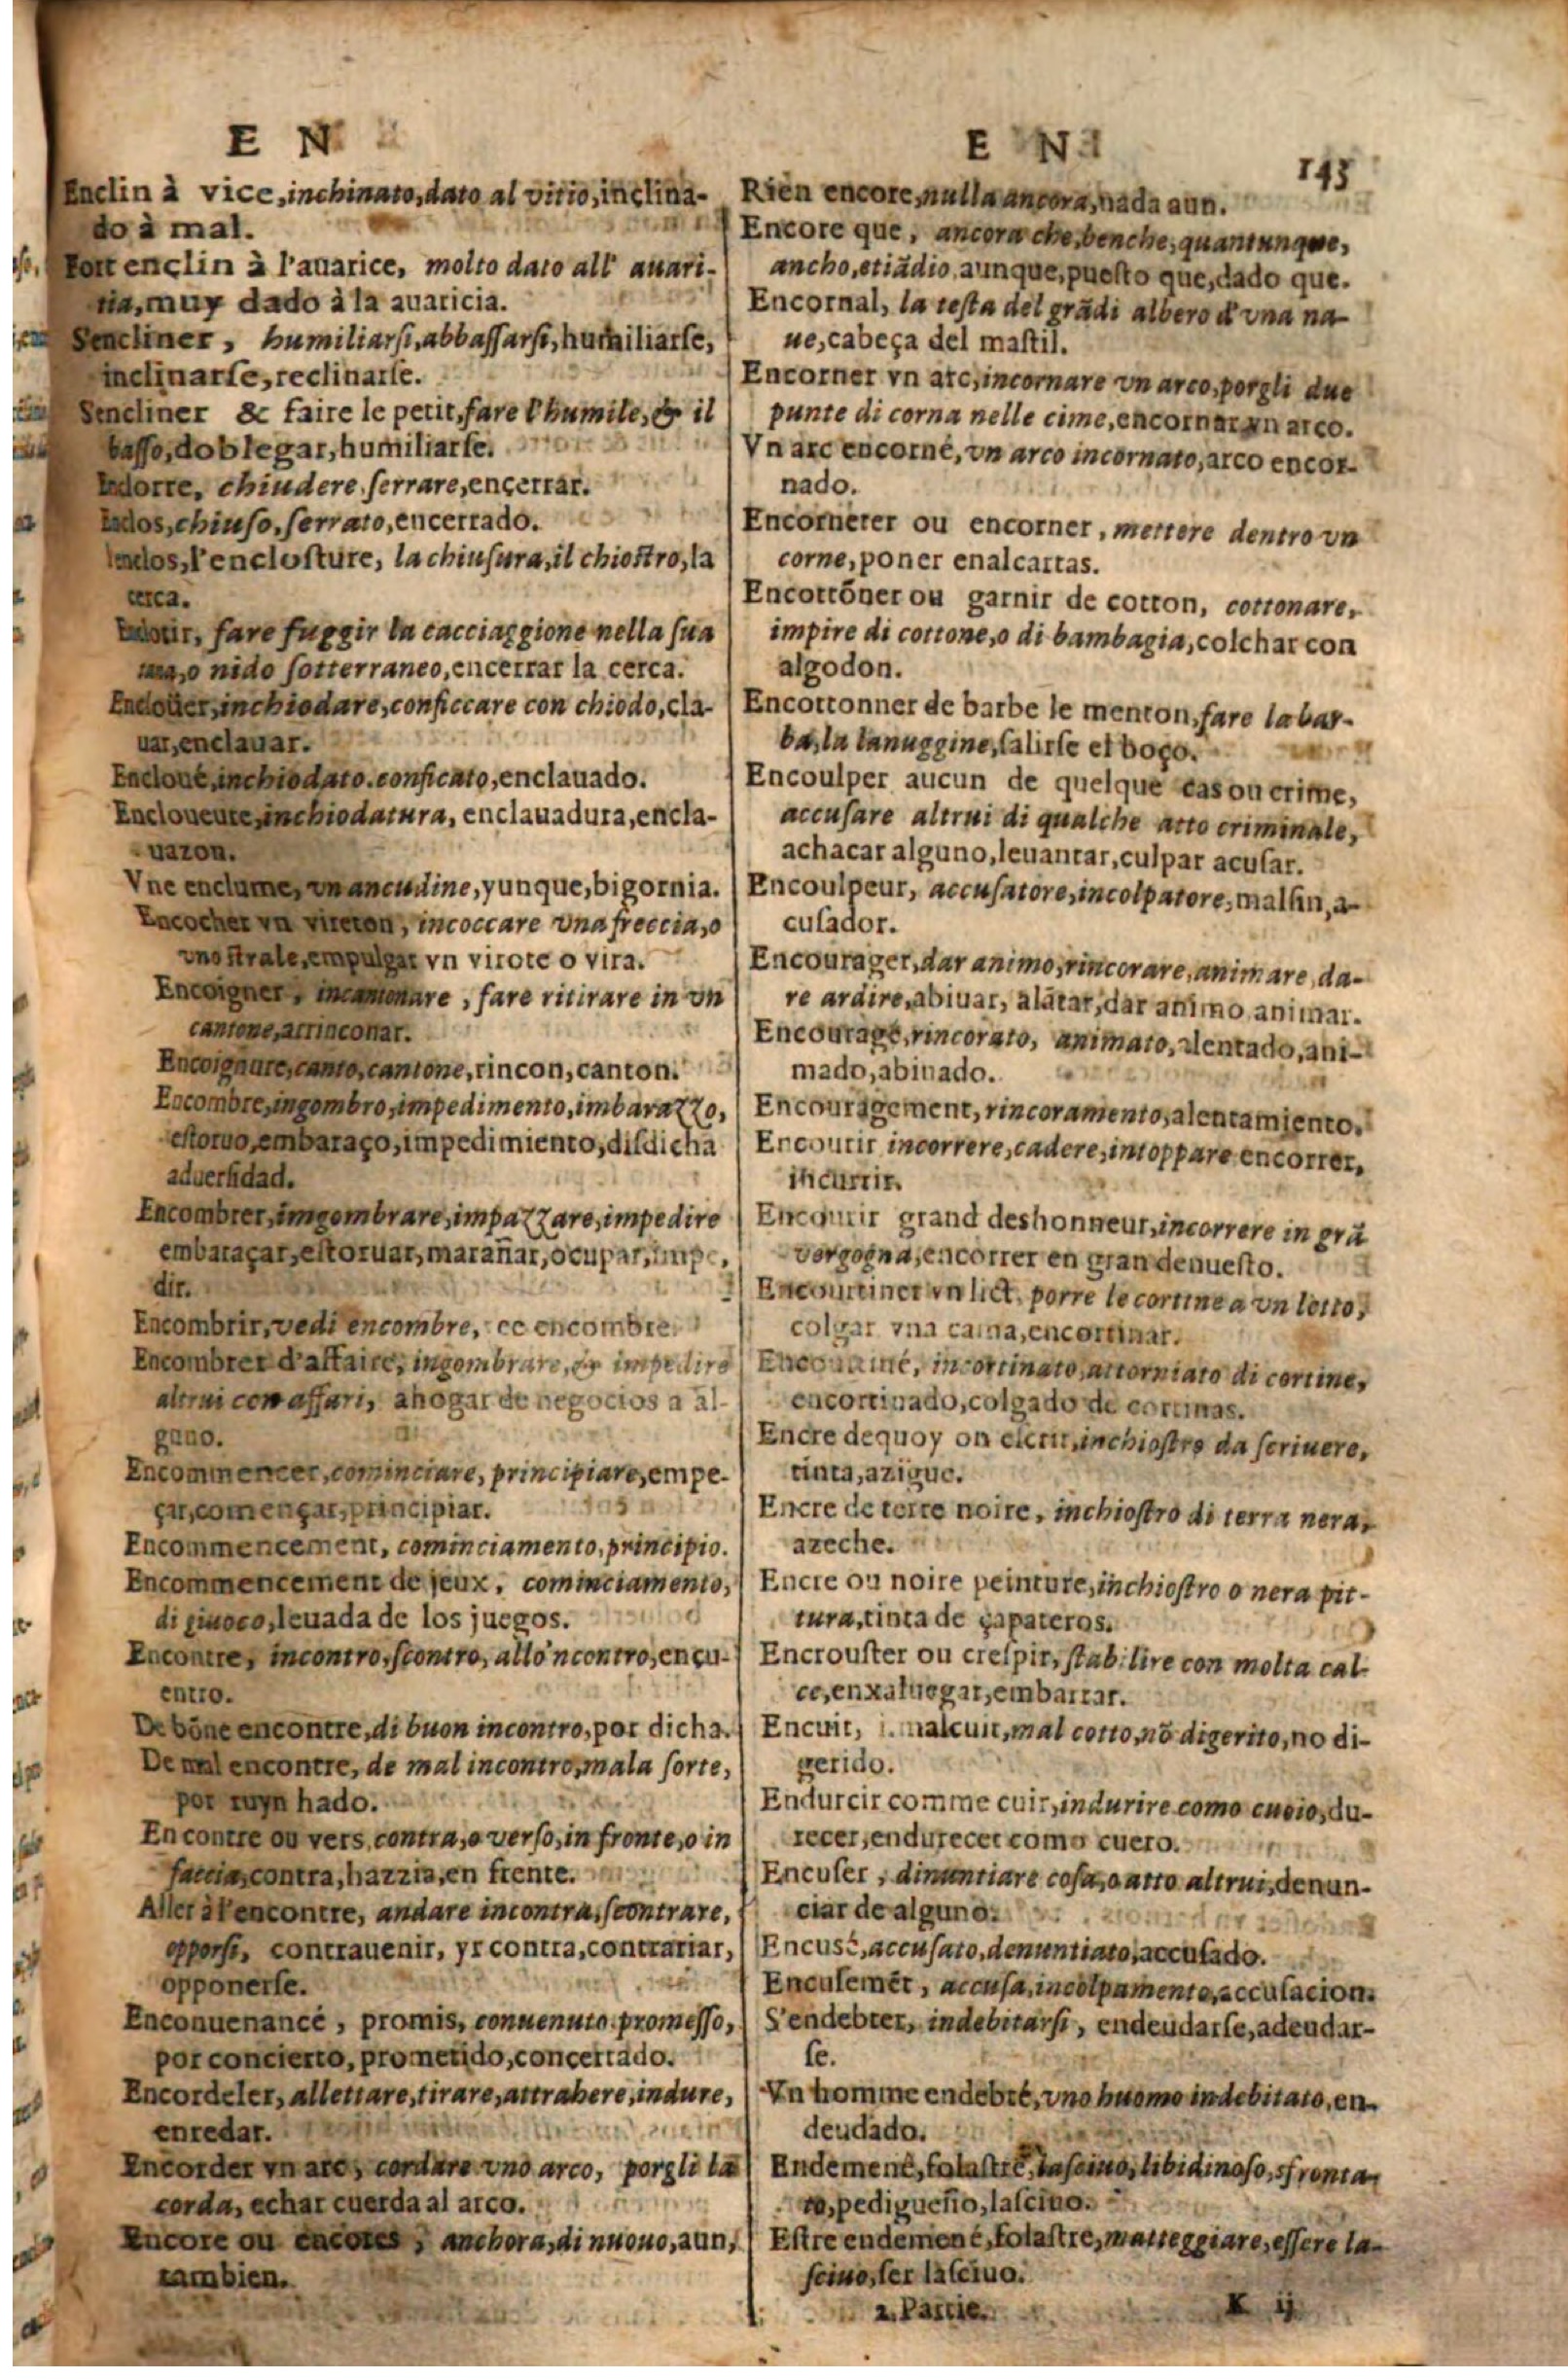 E N
Enclin à vice, inchinato, dato al vitio, inclina-
do à mal.
Fort enclin à l'auarice, molto dato all' auari-
tia, muy dado à la auaricia.
S'encliner, humiliarsi, abbaſſarſi, humiliarſe,
inclinarſe, reclinarſe.
S'encliner & faire le petit, fare l'humile, & il
baſſo, doblegar, humiliarſe.
Enclorre, chiudere, ſerrare, encerrar.
Enclos, chiuſo, ſerrato, encerrado.
l'enclos, l'encloſture, la chiuſura, il chioſtro, la
cerca.
fare fuggir la cacciaggione nella ſua
tana, o nido ſotterraneo, encerrar la cerca.
Encloüer, inchiodare, conficcare con chiodo, cla-
uar, enclauar.
Encloué, inchiodato. conficato, enclauado.
Encloueure, inchiodatura, enclauadura, encla-
uazon.
Vne enclume, vn ancudine, yunque, bigornia.
Encocher vn vireton, incoccare vna freccia, o
vno ſtrale, empulgar vn virote o vira.
Encoigner, incantonare, fare ritirare in vn
cantone, arrinconar.
Encoignure, canto, cantone, rincon, canton.
Encombre, ingombro, impedimento, imbarazzo,
eſtoruo, embaraço, impedimiento, diſdicha
aduerſidad.
Encombrer, imgombrare, impazzare, impedire
embaraçar, eſtoruar, marañar, ocupar, impe,
dir.
Encombrir, vedi encombre, ce encombre.
Encombrer d'affaire, ingombrare, & impedire
altrui con affari, ahogar de negocios a al-
guno.
Encommencer, cominciare, principiare, empe-
çar, començar, principiar.
Encommencement, cominciamento, principio.
Encommencement de jeux, cominciamento,
di giuoco, leuada de los juegos.
Encontre, incontro, ſcontro, allo'ncontro, encu-
entro.
De bõne encontre, di buon incontro, por dicha.
De mal encontre, de mal incontro, mala ſorte,
por ruyn hado.
En contre ou vers, contra, o verſo, in fronte, o in
faccia, contra, hazzia, en frente.
Aller à l'encontre, andare incontra, ſcontrare,
opporſi, contrauenir, yr contra, contrariar,
opponerſe.
Enconuenancé, promis, conuenuto promeſſo,
por concierto, prometido, concertado.
Encordeler, allettare, tirare, attrahere, indure,
enredar.
Encorder vn arc, cordare vno arco, porgli la
corda, echar cuerda al arco.
Encore ou encores, anchora, di nuouo, aun,
tambien.
E N
143
Rien encore, nulla ancora, nada aun.
Encore que, ancora che, benche, quantunque,
ancho, etiãdio, aunque, pueſto que, dado que.
Encornal, la teſta del grãdi albero d'vna na-
ue, cabeça del maſtil.
Encorner vn arc, incornare vn arco, porgli due
punte di corna nelle cime, encornar vn arco.
Vn arc encorné, vn arco incornato, arco encor-
nado.
Encorneter ou encorner, mettere dentro vn
corne, poner enalcartas.
Encottõner ou garnir de cotton, cottonare,
impire di cottone, o di bambagia, colchar con
algodon.
Encottonner de barbe le menton, fare la bar-
ba, la lanuggine, ſalirſe el boço.
Encoulper aucun de quelque cas ou crime,
accuſare altrui di qualche atto criminale,
achacar alguno, leuantar, culpar acuſar.
Encoulpeur, accuſatore, incolpatore, malſin, a-
cuſador.
Encourager, dar animo, rincorare, animare, da-
re ardire, abiuar, alãtar, dar animo, animar.
Encouragé, rincorato, animato, alentado, ani-
mado, abiuado.
Encouragement, rincoramento, alentamiento.
Encourir incorrere, cadere, intoppare encorrer,
incurrir.
Encourir grand deshonneur, incorrere in grã
vergogna, encorrer en gran denueſto.
Encourtiner vn lict, porre le cortine a vn letto,
colgar vna cama, encortinar.
Encourtiné, incortinato, attorniato di cortine,
encortinado, colgado de cortinas.
Encre dequoy on eſcrit, inchioſtro da ſcriuere,
tinta, azigue.
Encre de terre noire, inchioſtro di terra nera,
azeche.
Encre ou noire peinture, inchioſtro o nera pit-
tura, tinta de çapateros.
Encrouſter ou creſpir, ſtabilire con molta cal-
ce, enxaluegar, embarrar.
Encuit, i. malcuit, mal cotto, nõ digerito, no di-
gerido.
Endurcir comme cuir, indurire como cuoio, du-
recer, endurecer como cuero.
Encuſer, dinuntiare coſa, o atto altrui, denun-
ciar de alguno.
Encusé, accuſato, denuntiato, accuſado.
Encuſemẽt, accuſa, incolpamento, accuſacion.
S'endebter, indebitarſi, endeudarſe, adeudar-
ſe.
Vn homme endebté, vno huomo indebitato, en-
deudado.
Endemené, folaſtre, laſciuo, libidinoſo, sfronta-
to, pedigueño, laſciuo.
Eſtre endemené, folaſtre, matteggiare, eſſere la-
ſciuo, ſer laſciuo.
2. Partie.
K ij